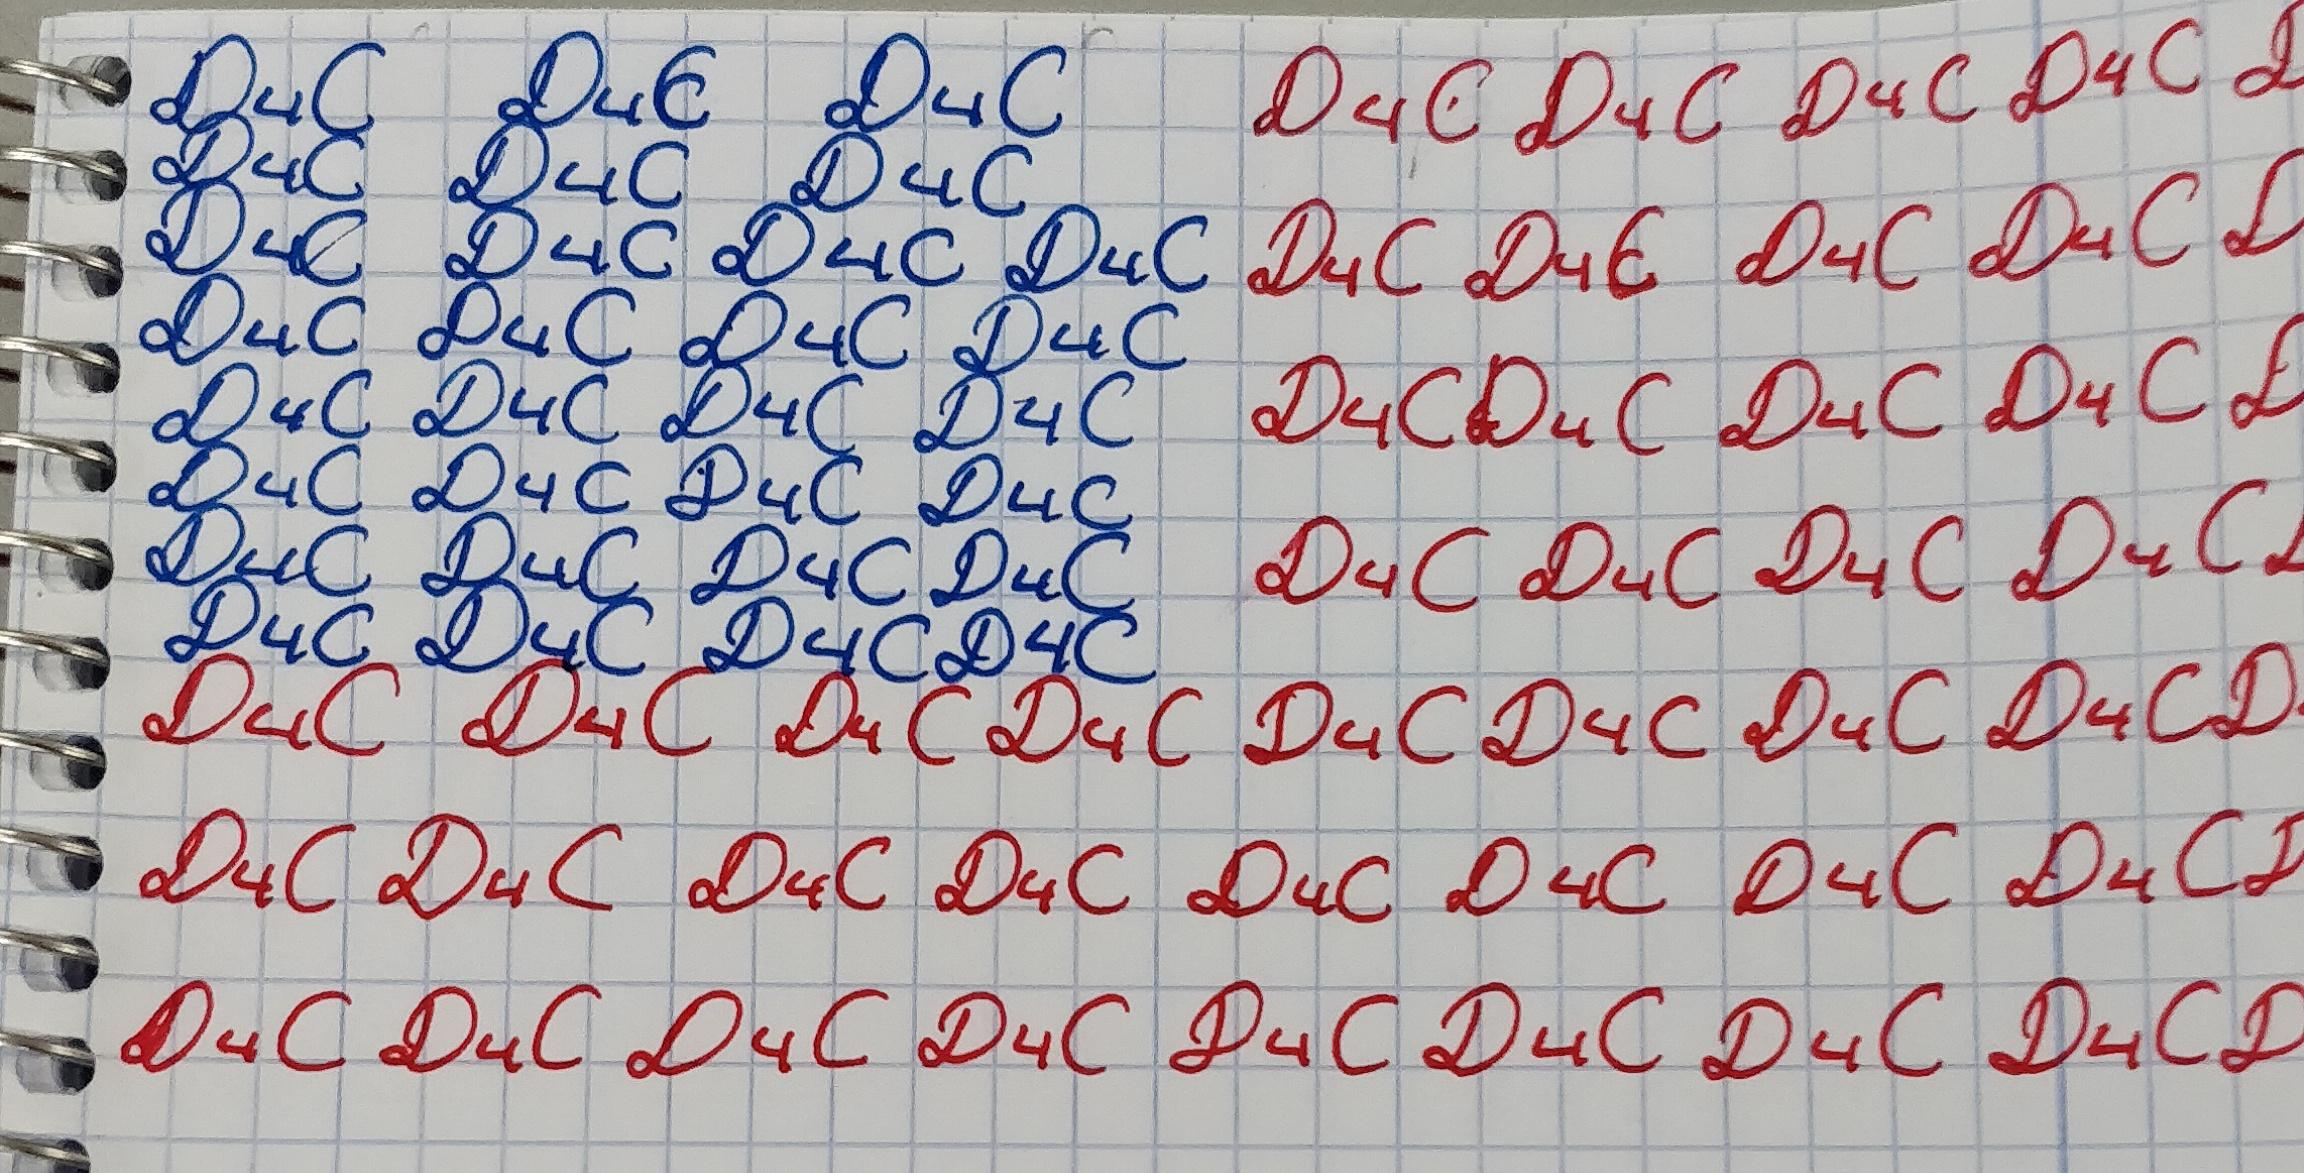 D4C D4C D4C
D4C D4C D4C
D4C D4C D4C D4C
D4C D4C D4C D4C
D4C D4C D4C D4C
D4C D4C D4C D4C
D4C D4C D4C D4C
D4C D4C D4C D4C
D4C D4C D4C D4C D
D4C D4C D4C D4C D
D4C D4C D4C D4C D
D4C D4C D4C D4C D
D4C D4C D4C D4C D4C D4C D4C D4C D
D4C D4C D4C D4C D4C D4C D4C D4C D
D4C D4C D4C D4C D4C D4C D4C D4C D